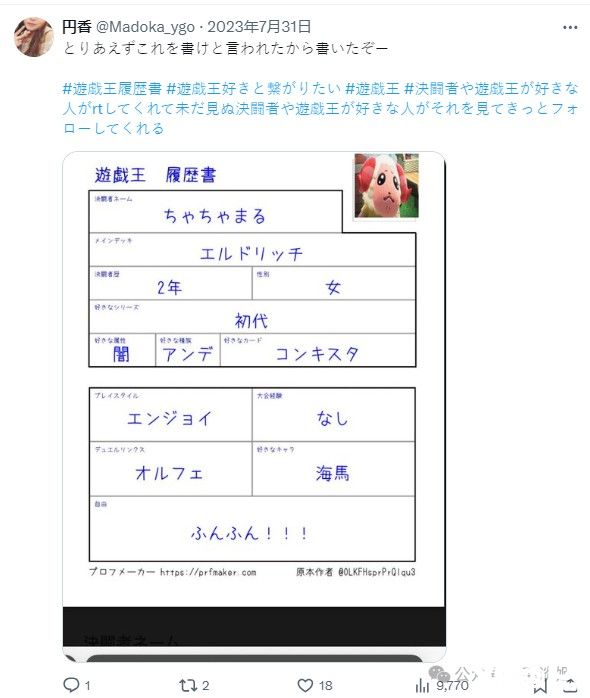 円香 @Madoka_ygo · 2023年7月31日
とりあえずこれを書けと言われたから書いたぞー
#遊戯王履歴書 #遊戯王好きと繋がりたい #遊戯王 #決闘者や遊戯王が好きな
人がrtしてくれて未だ見ぬ決闘者や遊戯王が好きな人がそれを見てきっとフォ
ローしてくれる
遊戯王 履歴書
決闘者ネーム
ちゃちゃまる
メインデッキ
エルドリッチ
決闘者歴 性別
2年 女
好きなシリーズ
初代
好きな属性 好きな種族 好きなカード
闇 アンデ コンキスタ
プレイスタイル 大会経験
エンジョイ なし
デュエルリンクス 好きなキャラ
オルフェ 海馬
自由
ふんふん！！！
プロフメーカー https://prfmaker.com 原本作者 @OLKFHsprPrQlqu3
決闘者ネーム
1 2 18 9,770